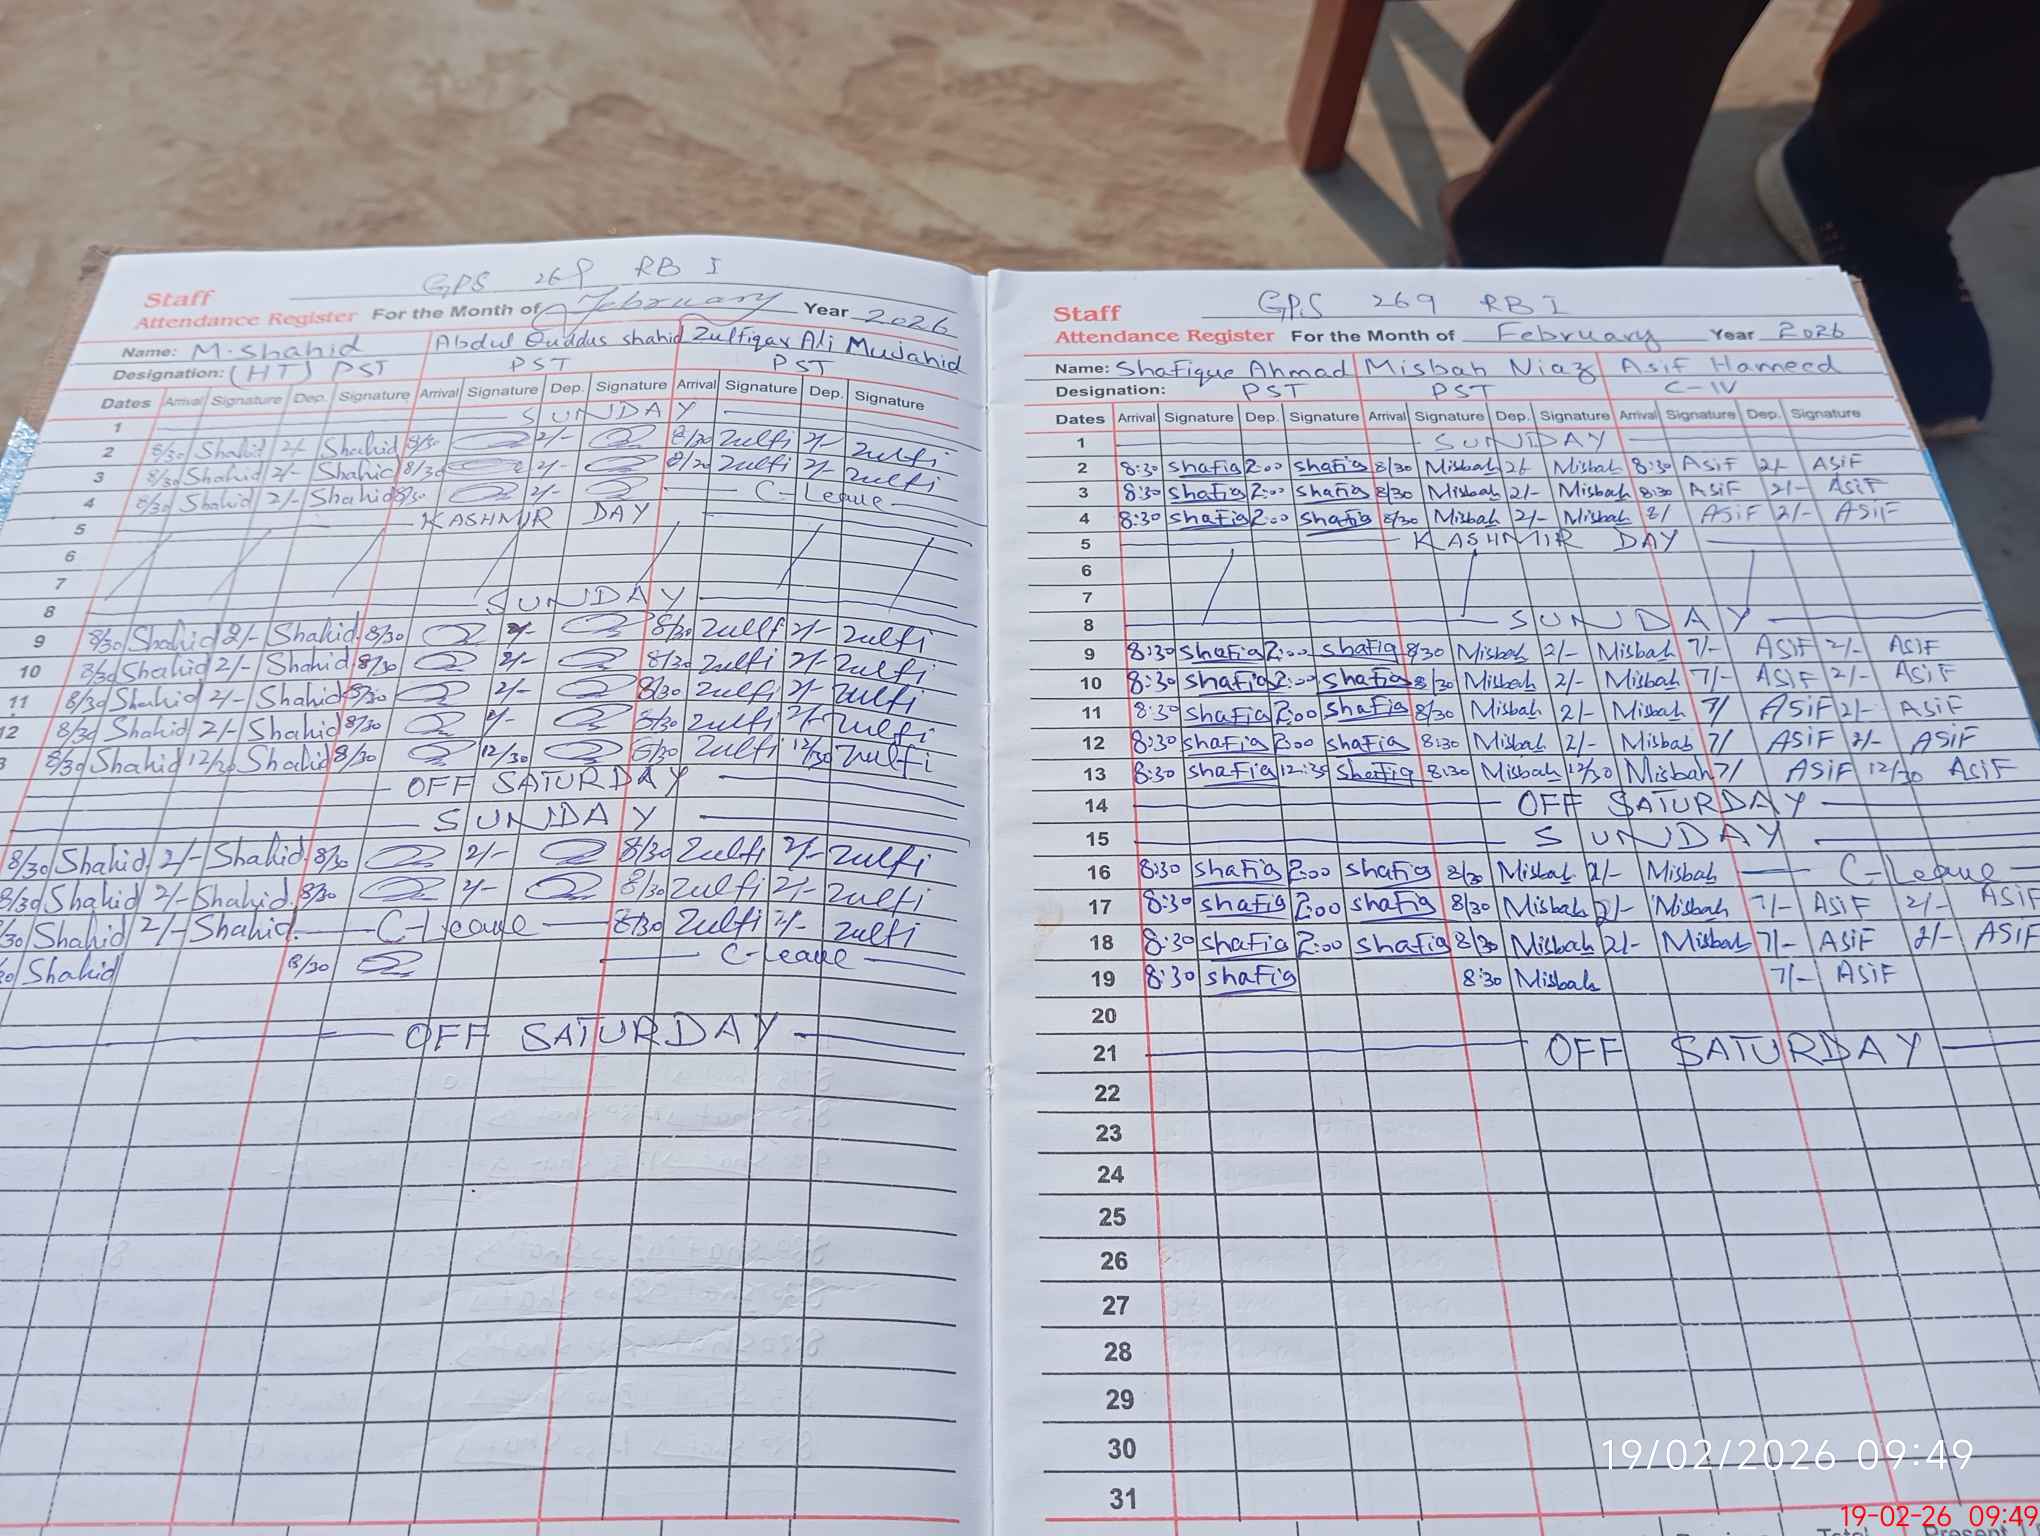 GPS 269 RB I
Staff
Attendance Register For the Month of February Year 2026
Name: M. Shahid Abdul Quddus shahid Zulfiqar Ali Mujahid
Designation: (HT) PST PST PST
Dates Arrival Signature Dep. Signature Arrival Signature Dep. Signature Arrival Signature Dep. Signature
1 SUNDAY
2 8/30 Shahid 2/- Shahid 8/30 2/- 8/30 Zulfi 2/- Zulfi
3 8/30 Shahid 2/- Shahid 8/30 2/- 8/30 Zulfi 2/- Zulfi
4 8/30 Shahid 2/- Shahid 8/30 2/- C-Leave
5 KASHMIR DAY
6
7
8 SUNDAY
9 8/30 Shahid 2/- Shahid 8/30 2/- 8/30 Zulfi 2/- Zulfi
10 8/30 Shahid 2/- Shahid 8/30 2/- 8/30 Zulfi 2/- Zulfi
11 8/30 Shahid 2/- Shahid 8/30 2/- 8/30 Zulfi 2/- Zulfi
12 8/30 Shahid 2/- Shahid 8/30 2/- 8/30 Zulfi 2/- Zulfi
3 8/30 Shahid 12/30 Shahid 8/30 12/30 8/30 Zulfi 12/30 Zulfi
OFF SATURDAY
SUNDAY
8/30 Shahid 2/- Shahid 8/30 2/- 8/30 Zulfi 2/- Zulfi
8/30 Shahid 2/- Shahid 8/30 2/- 8/30 Zulfi 2/- Zulfi
/30 Shahid 2/- Shahid C-Leave 8/30 Zulfi 2/- Zulfi
30 Shahid 8/30 C-Leave
OFF SATURDAY
GPS 269 RB I
Staff
Attendance Register For the Month of February Year 2026
Name: Shafique Ahmad Misbah Niaz Asif Hameed
Designation: PST PST C-IV
Dates Arrival Signature Dep. Signature Arrival Signature Dep. Signature Arrival Signature Dep. Signature
1 SUNDAY
2 8:30 shafiq 2:00 shafiq 8/30 Misbah 2/- Misbah 8:30 ASiF 2/- ASiF
3 8:30 shafiq 2:00 shafiq 8/30 Misbah 2/- Misbah 8:30 ASiF 2/- ASiF
4 8:30 shafiq 2:00 shafiq 8/30 Misbah 2/- Misbah 8/ ASiF 2/- ASiF
5 KASHMIR DAY
6
7
8 SUNDAY
9 8:30 shafiq 2:00 shafiq 8/30 Misbah 2/- Misbah 7/- ASiF 2/- ASiF
10 8:30 shafiq 2:00 shafiq 8/30 Misbah 2/- Misbah 7/- ASiF 2/- ASiF
11 8:30 shafiq 2:00 shafiq 8/30 Misbah 2/- Misbah 7/ ASiF 2/- ASiF
12 8:30 shafiq 2:00 shafiq 8:30 Misbah 2/- Misbah 7/ ASiF 2/- ASiF
13 8:30 shafiq 12:30 shafiq 8:30 Misbah 12/30 Misbah 7/ ASiF 12/30 ASiF
14 OFF SATURDAY
15 SUNDAY
16 8:30 shafiq 2:00 shafiq 8/30 Misbah 2/- Misbah C-Leave
17 8:30 shafiq 2:00 shafiq 8/30 Misbah 2/- Misbah 7/- ASiF 2/- ASiF
18 8:30 shafiq 2:00 shafiq 8/30 Misbah 2/- Misbah 7/- ASiF 2/- ASiF
19 8:30 shafiq 8:30 Misbah 7/- ASiF
20
21 OFF SATURDAY
22
23
24
25
26
27
28
29
30
31
19/02/2026 09:49
19-02-26 09:49